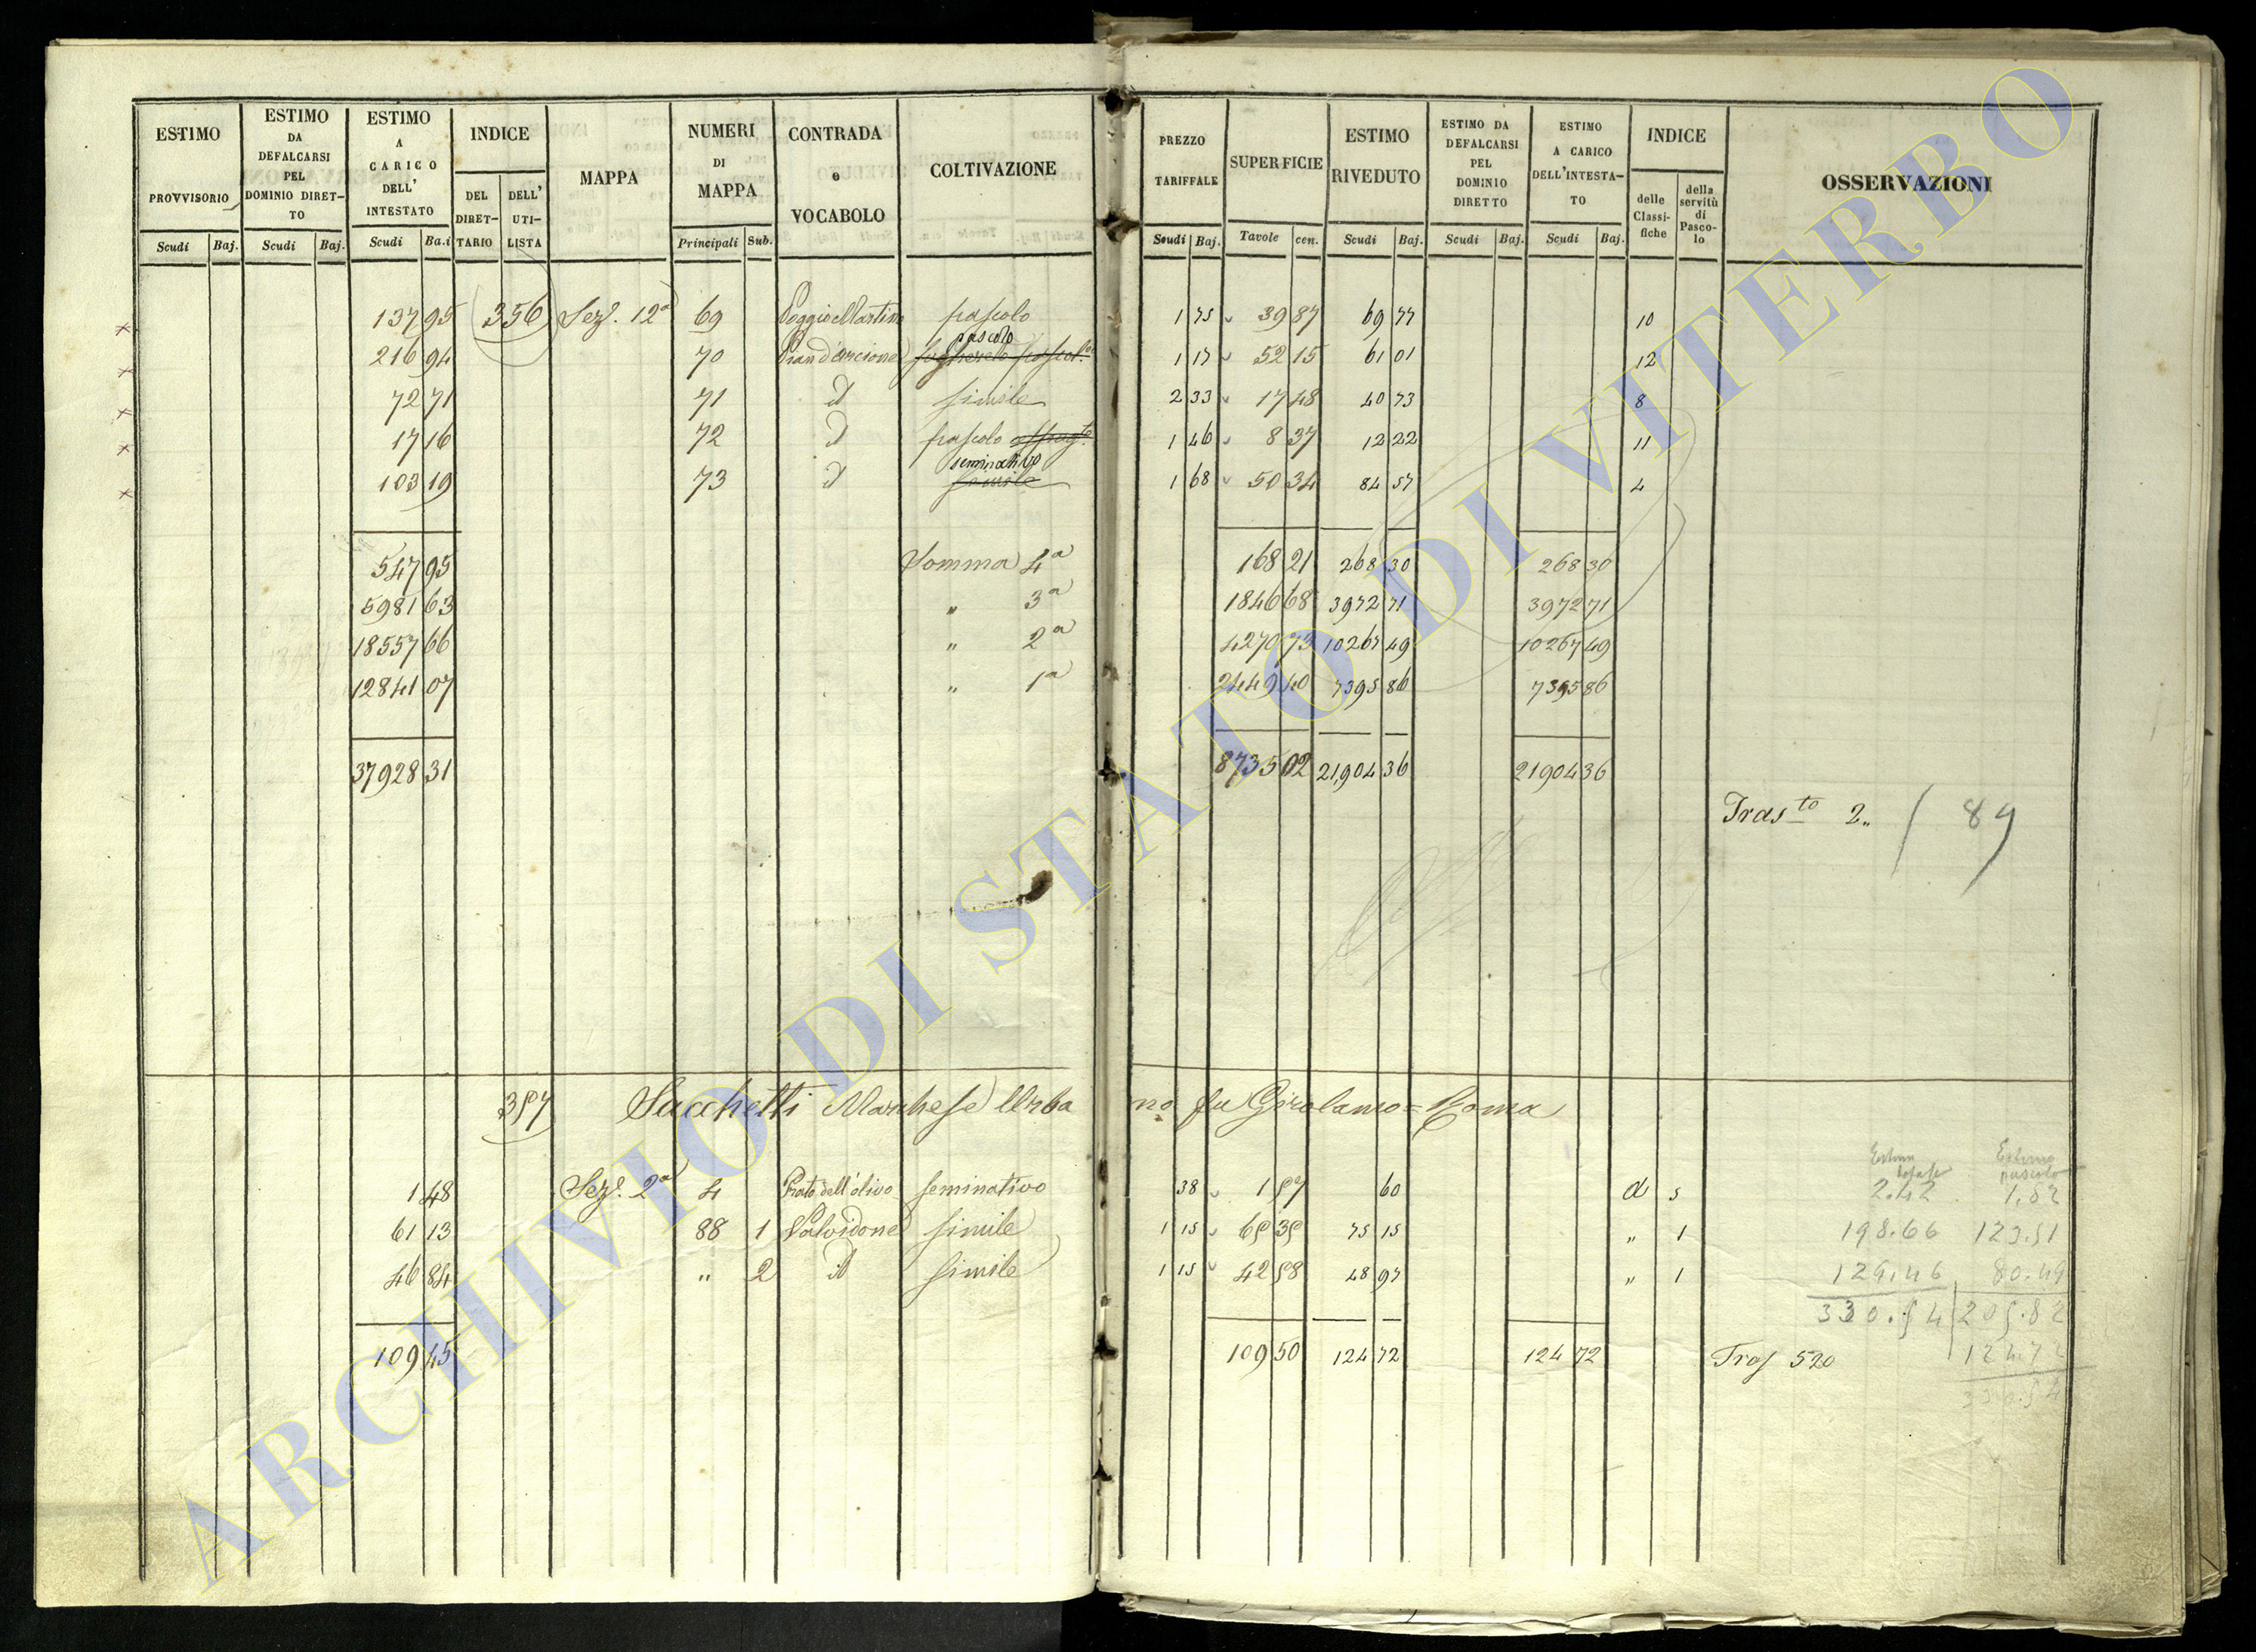 ESTIMO PROVVISORIO Scudi Baj. ESTIMO DA DEFALCARSI PEL DOMINIO DIRET-TO Scudi Baj. ESTIMO A CARICO DELL' INTESTATO Scudi Ba.i INDICE DEL DIRET-TARIO DELL' UTI-LISTA MAPPA NUMERI DI MAPPA Principali Sub. CONTRADA e VOCABOLO COLTIVAZIONE PREZZO TARIFFALE Scudi Baj. SUPERFICIE Tavole cen. ESTIMO RIVEDUTO Scudi Baj. ESTIMO DA DEFALCARSI PEL DOMINIO DIRETTO Scudi Baj. ESTIMO A CARICO DELL'INTESTA-TO Scudi Baj. INDICE delle Classi-fiche della servitù di Pasco-lo OSSERVAZIONI
137 95 356 Sez.e 12a 69 Poggio Martino pascolo 1 75 39 87 69 77 10
pascolo
216 94 70 Pian d'arcione 1 17 52 15 61 01 12
72 71 71 id simile 2 33 17 48 40 73 8
17 16 72 id pascolo 1 46 8 37 12 22 11
seminativo
103 19 73 id simile 1 68 50 34 84 57 4
547 95 Somma 4a 168 21 268 30 268 30
5981 63 " 3a 1846 68 3972 71 3972 71
18557 66 " 2a 4270 73 10267 49 10267 49
12841 07 " 1a 2449 40 7395 86 7395 86
37928 31 8735 02 21,904 36 21904 36
Tras.to 2" / 89
357 Sacchetti Marchese Urbano fu Girolamo = Roma
Estimo Estimo pascolo
1 48 Sez.e 2a 4 Prato dell'olivo seminativo 38 1 57 60 d 5 2.42 1.82
61 13 88 1 Valvidone simile 1 15 65 35 75 15 " 1 198.66 123.51
46 84 " 2 id simile 1 15 42 58 48 97 " 1 129.46 80.49
330.54 205.82
109 45 109 50 124 72 124 72 Tras 520 124.72
330.54
ARCHIVIO DI STATO DI VITERBO